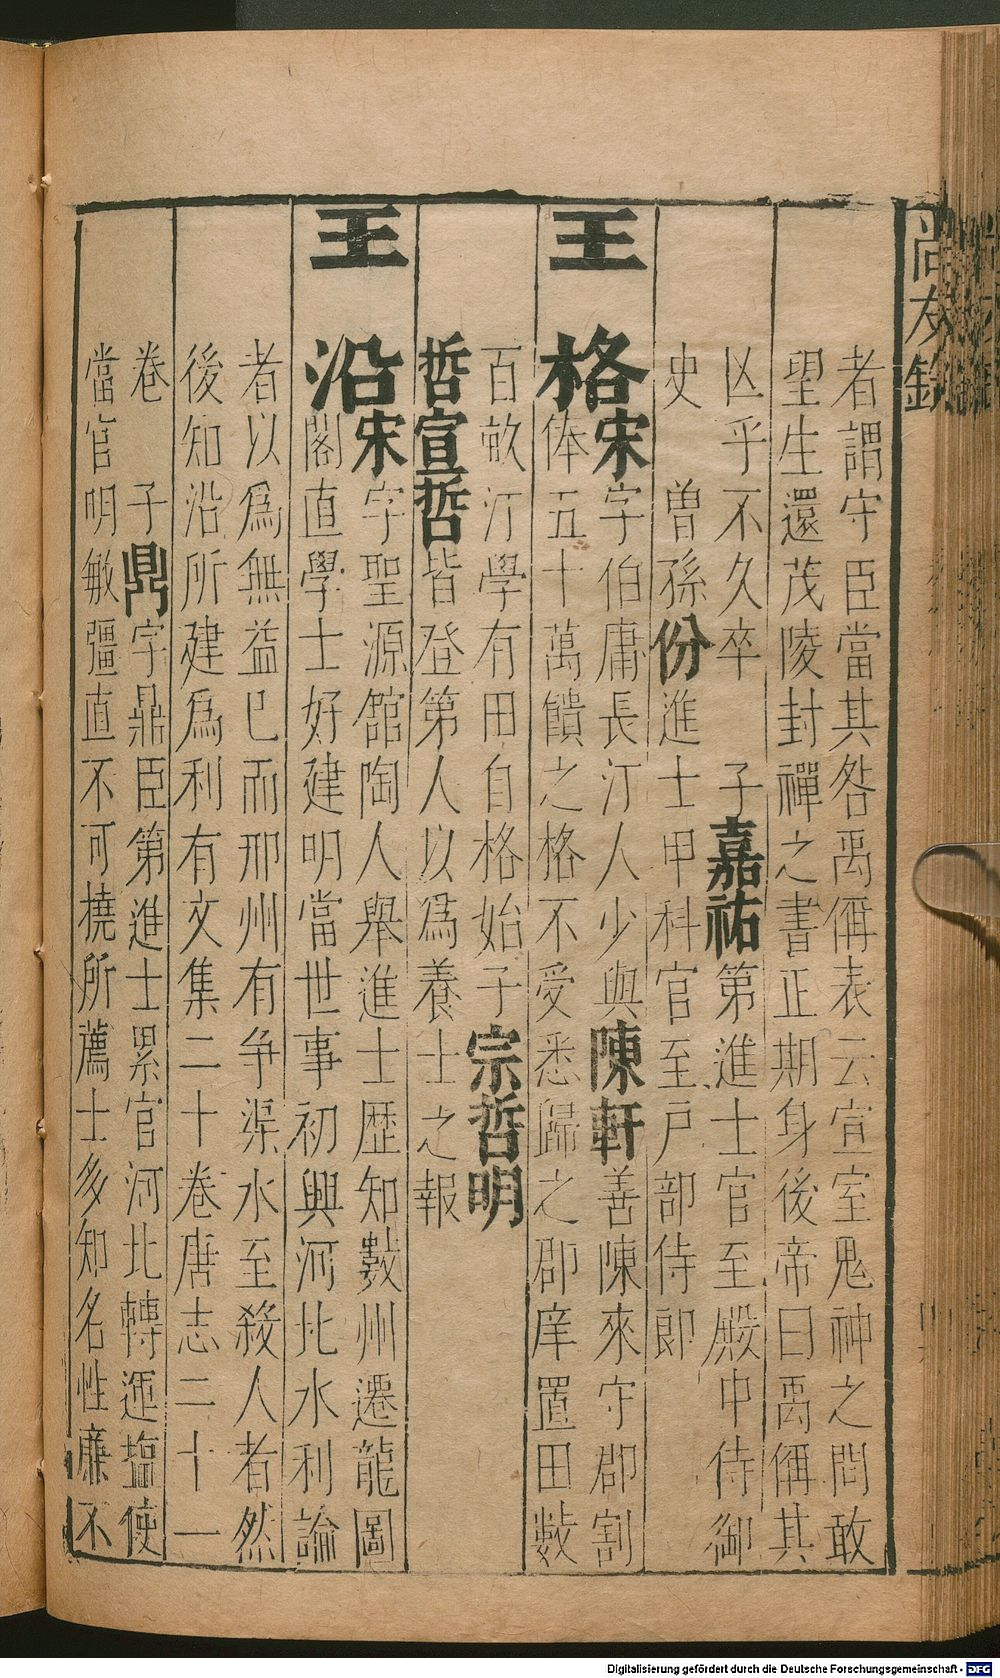 尚友錄
者謂守臣當其咎禹偁表云宣室鬼神之問敢
望生還茂陵封禪之書正期身後帝曰禹偁其
凶乎不久卒 子嘉祐第進士官至殿中侍御
史 曽孫份進士甲科官至戸部侍郎
王 格宋字伯庸長汀人少與陳軒善陳來守郡割
俸五十萬饋之格不受悉歸之郡庠置田數
百畝汀學有田自格始子宗哲明
哲宣哲皆登第人以爲養士之報
王 沿宋字聖源舘陶人舉進士歴知數州遷龍圖
閣直學士好建明當世事初興河北水利論
者以爲無益巳而邢州有争渠水至殺人者然
後知沿所建爲利有文集二十卷唐志二十一
卷 子鼎字鼎臣第進士累官河北轉運塩使
當官明敏彊直不可撓所薦士多知名性廉不
Digitalisierung gefördert durch die Deutsche Forschungsgemeinschaft - DFG